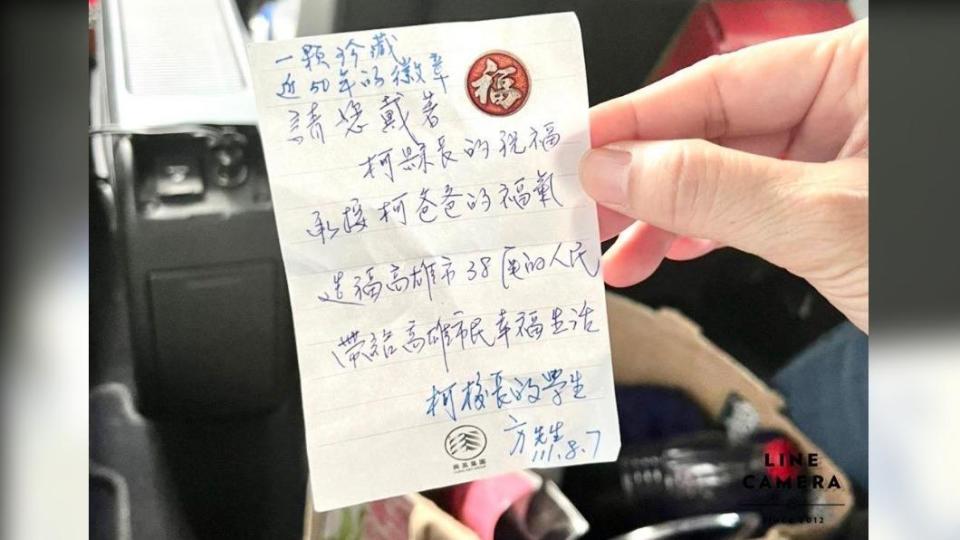 一顆珍藏
近50年的徽章
福
請您戴著
柯縣長的祝福
承接柯爸爸的福氣
造福高雄市38區的人民
帶給高雄市民幸福生活
柯校長的學生
方先生
111.8.7
興富集團
LINE
CAMERA
SINCE 2012